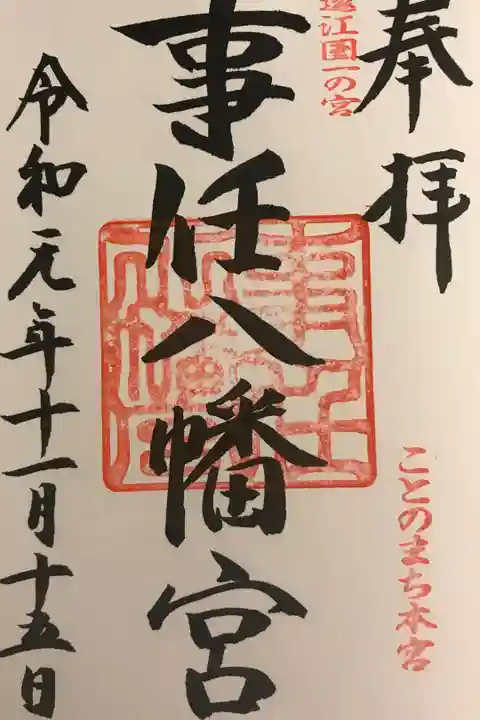 奉拝
遠江国一の宮
ことのまち本宮
事任八幡宮
令和元年十一月十五日